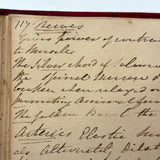 117 Nerves
Gives power of contract
to Muscles
The Silver Chord of Solomon
the Spinal Marrow
broken when
The Golden Bowl the
Arteries Elastic
Alternately Dilate